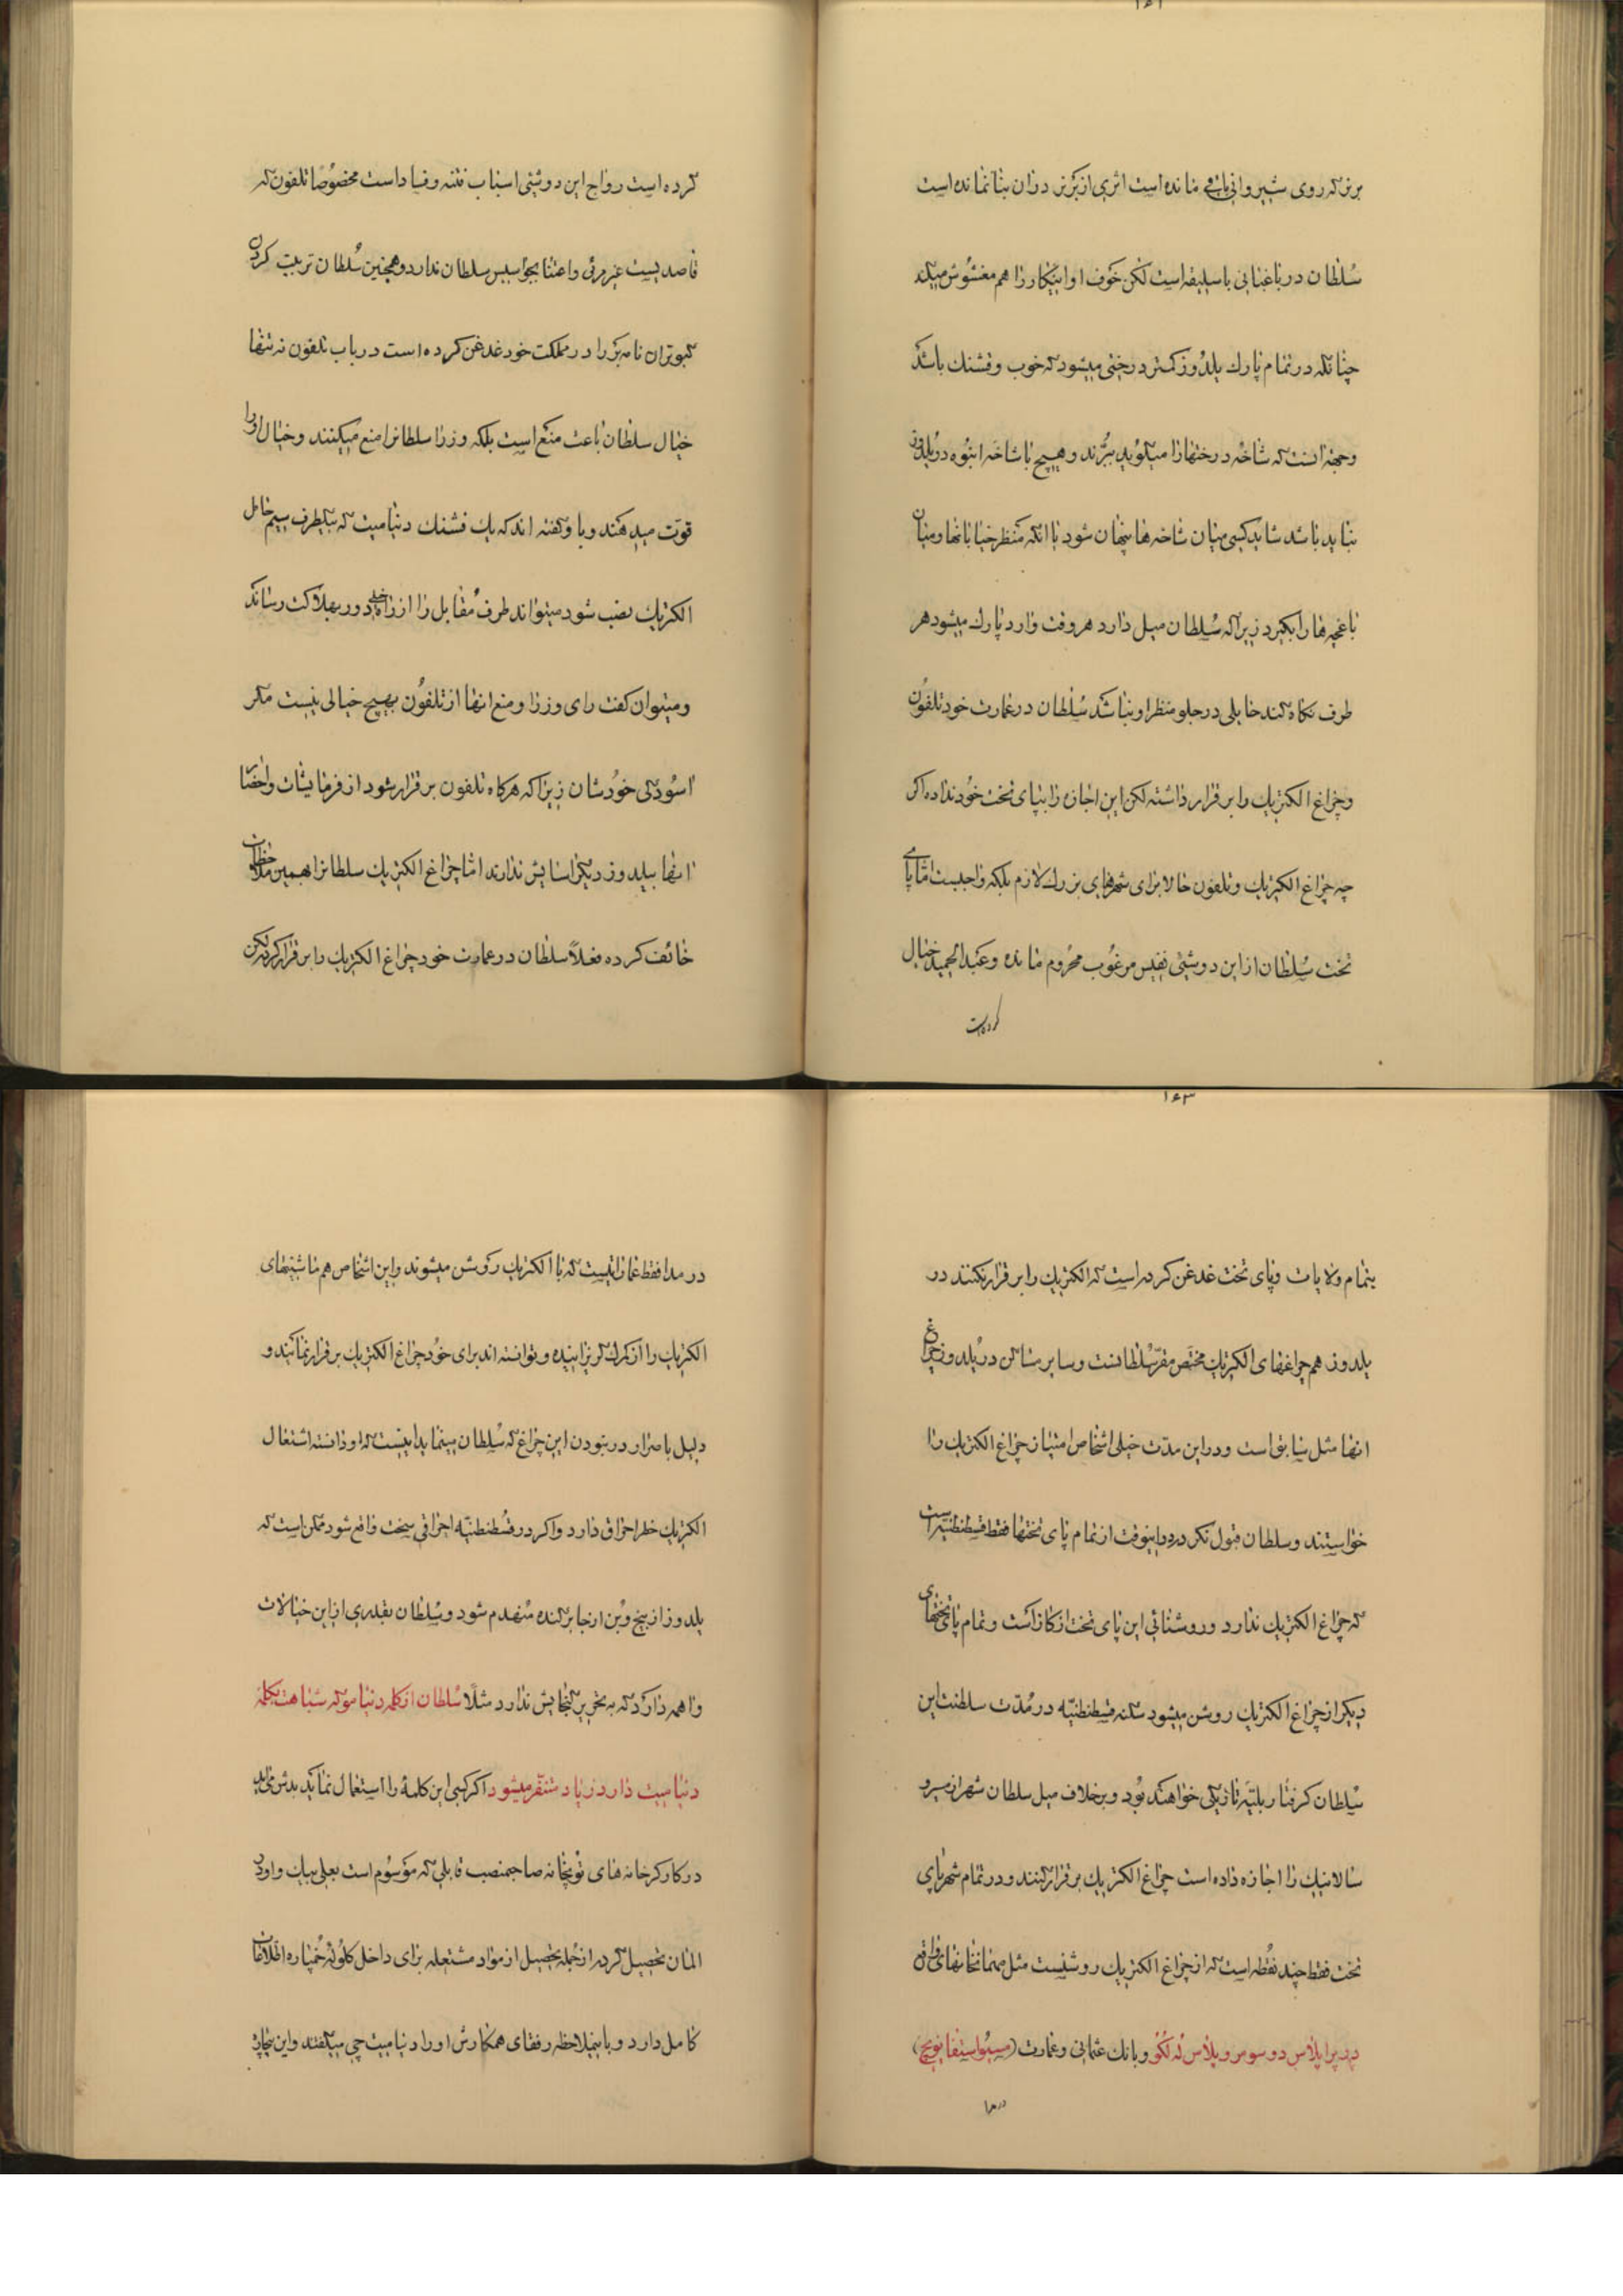 ۱۶۱
برنز که روی شیروانی باقی مانده است اثری از برنز در آن بنا نمانده است
سُلطان در باغبانی با سلیقه است لکن خوف او اینکار را هم مغشوش میکند
چنانکه در تمام پارك یلدوز کمتر درختی میشود که خوب و قشنك باشد
وجهه آنست که شاخه درختها را میگوید ببُرند و هیچ با شاخه انبوه در یلدوز
نباید باشد شاید کسی میان شاخه ها پنهان شود یا آنکه منظر خیابانها و میان
باغچه ها را بگیرد زیرا که سُلطان میل دارد هر وقت وارد پارك میشود هر
طرف نگاه کند حایلی در جلو منظر او نباشد سُلطان در عمارت خود تلفون
و چراغ الکتریك را برقرار داشته لکن این اجازه را بپای تخت خود نداده اکر
چه چراغ الکتریك و تلفون حالا برای شهرهای بزرك لازم بلکه واجبست امّا پای
تخت سُلطان از این دو شیئی نفیس مرغوب محروم مانده و عبدالحمید خیال
کرده است
کرده است رواج این دو شیئی اسباب فتنه و فساد است مخصوصًا تلفون که
قاصدیست غیر مرئی و اعتنا بجواسیس سلطان ندارد و همچنین سُلطان تربیت کردن
کبوتران نامه بَر را در مملکت خود غدغن کرده است در باب تلفون نه تنها
خیال سلطان باعث منع است بلکه وزرا سلطانرا منع میکنند و خیال او را
قوّت میدهند و باو گفته اند که یك فشنك دینامیت که بیکطرف سیم حامل
الکتریك نصب شود میتواند طرف مُقابل را از راه خیلی دور بهلاکت رساند
و میتوان کفت رای وزرا و منع آنها از تلفون بهیچ خیالی نیست مکر
آسودکی خودشان زیرا که هرکاه تلفون برقرار شود از فرمایشات و احضار
آنها بیلدوز دیکر آسایش ندارند امّا چراغ الکتریك سلطانرا همین ملاحظات
خائف کرده فعلاً سلطان در عمارت خود چراغ الکتریك را برقرار کرده لکن
۱۶۳
بتمام ولایات و پای تخت غدغن کرده است که الکتریك را برقرار نکنند در
یلدوز هم چراغهای الکتریك مختص مقرّ سُلطانست و سایر مساکن در یلدوز چراغ
آنها مثل سابق است و در این مدّت خیلی اشخاص امتیاز چراغ الکتریك را
خواستند و سلطان قبول نکرده در اینوقت از تمام پای تختها فقط قسطنطنیه است
که چراغ الکتریك ندارد و روشنائی این پای تخت از کاز است و تمام پای تختهای
دیکر از چراغ الکتریك روشن میشود سکنه قسطنطنیّه در مُدّت سلطنت این
سُلطان کرفتار بلیّه تاریکی خواهند بود و برخلاف میل سلطان شهر ازمیر و
سالانیك را اجازه داده است چراغ الکتریك برقرار کنند و در تمام شهر پای
تخت فقط چند نقُطه است که از چراغ الکتریك روشنست مثل مهمانخانهای واقع
در پرا پلاس دو سوس و پلاس ته لکتو و بانك عثمانی و عمارت (مسیو استفانویچ)
در مدا
در مدا فقط عماراتیست که با الکتریك روشن میشوند و این اشخاص هم ماشینهای
الکتریك را از گمرك گریزانیده و توانسته اند برای خود چراغ الکتریك برقرار نمایند و
دلیل باصرار در نبودن این چراغ که سُلطان مینماید اینست که او دانسته اشتغال
الکتریك خطر احراق دارد و اکر در قسُطنطنیّه احراقی سخت واقع شود ممکن است که
یلدوز از بیخ و بُن از جا برکنده مُنهدم شود و سُلطان بقدری از این خیالات
واهمه دارد که به تحریر کنجایش ندارد مثلاً سُلطان از کلمه دنیامو که شباهت بکلمه
دنیامیت دارد زیاد متنفّر میشود اگر کسی این کلمهٔ را استعمال نماید بدش میآید
در کارکرخانه های توپخانه صاحبمنصب قابلی که موسُوم است بعلی بیك و او در
المان تحصیل کرده از جمله تحصیل از مواد مشتعله برای داخل کلوله خُمپاره اطّلاعات
کامل دارد و باینملاحظه رفقای همکارش او را دینامیت چی میکفتند و این بیچاره